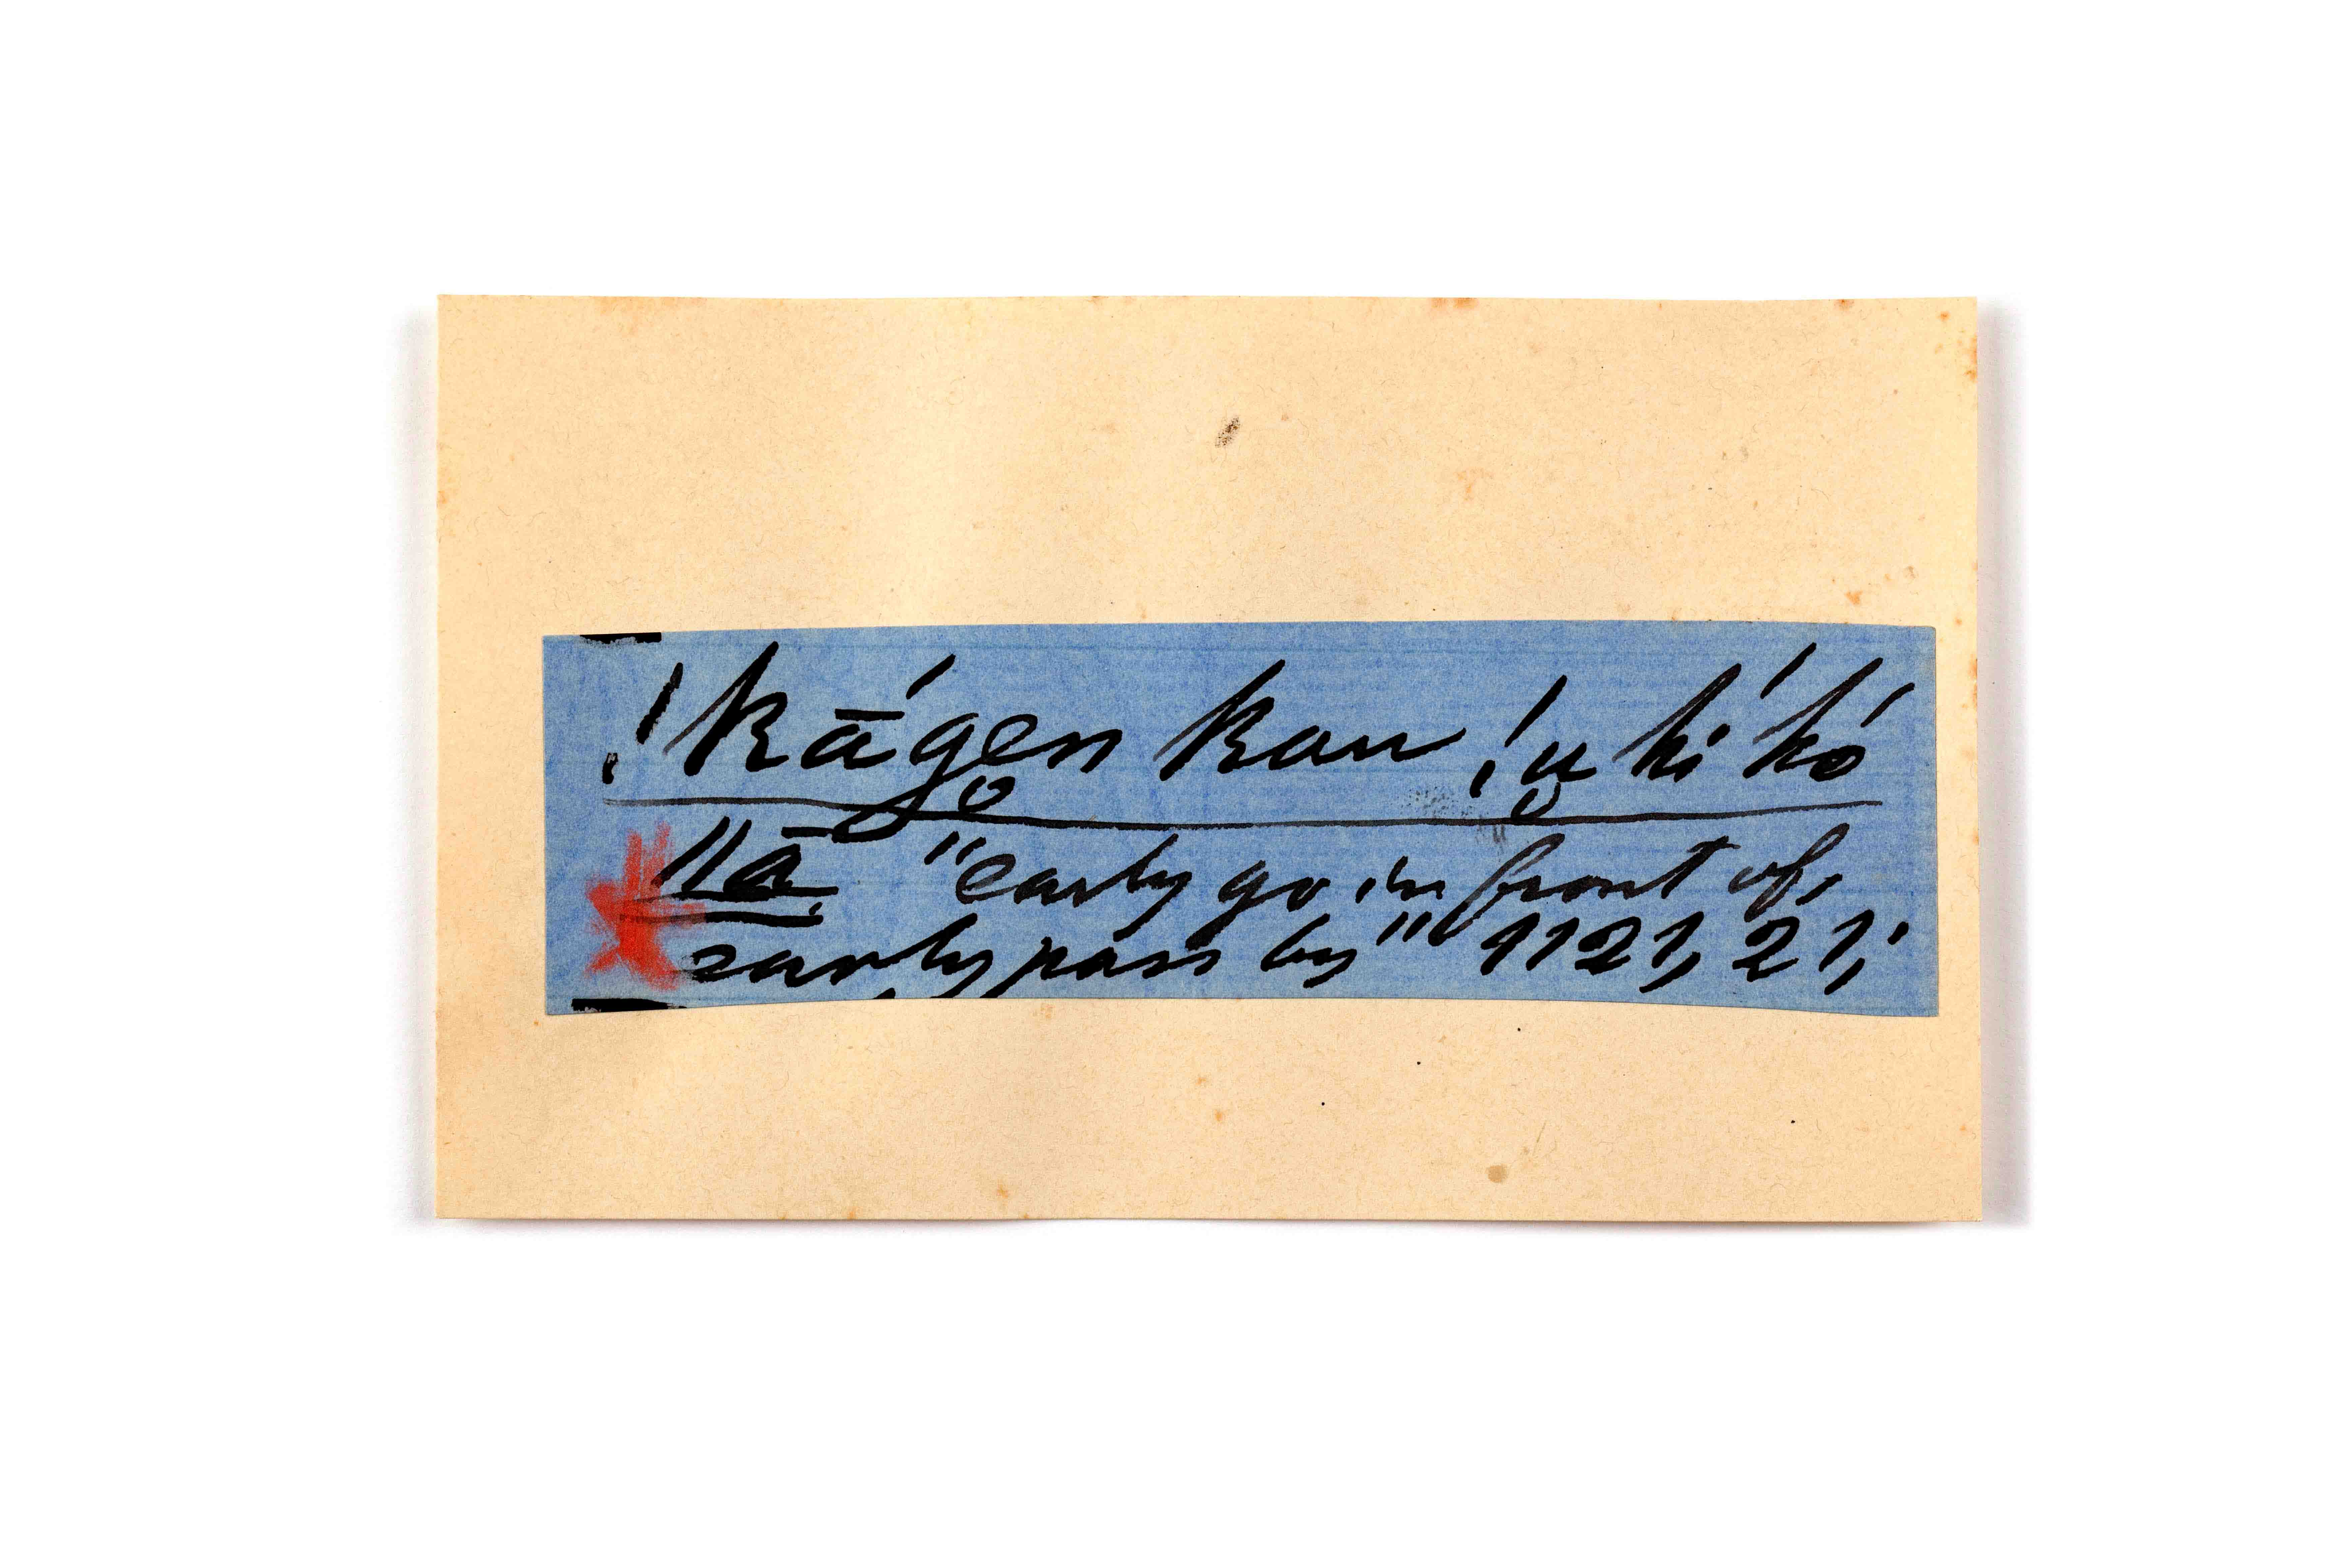 !kā́gen̥ kau !u̥ hi ́hó
ǁā̱. "early go in front of,
early pass by" 1121, 21,'